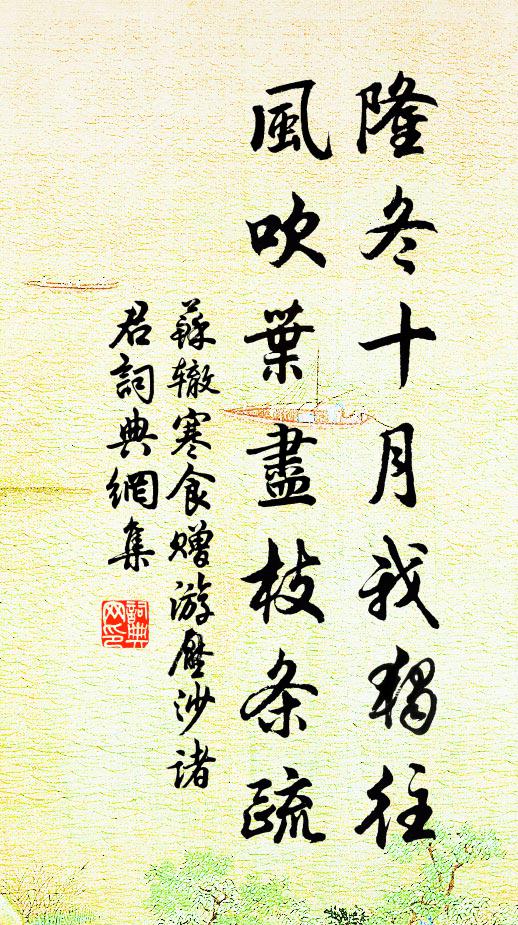 隆冬十月我獨往
風吹葉盡枝条疏
蘇辙寒食赠游壓沙诸
君詞典網集
詞典
网印